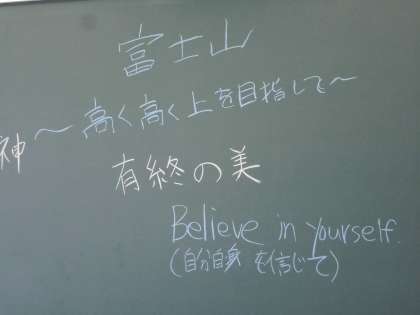 富士山
神～高く高く上を目指して～
有終の美
Believe in yourself.
(自分自身を信じて)